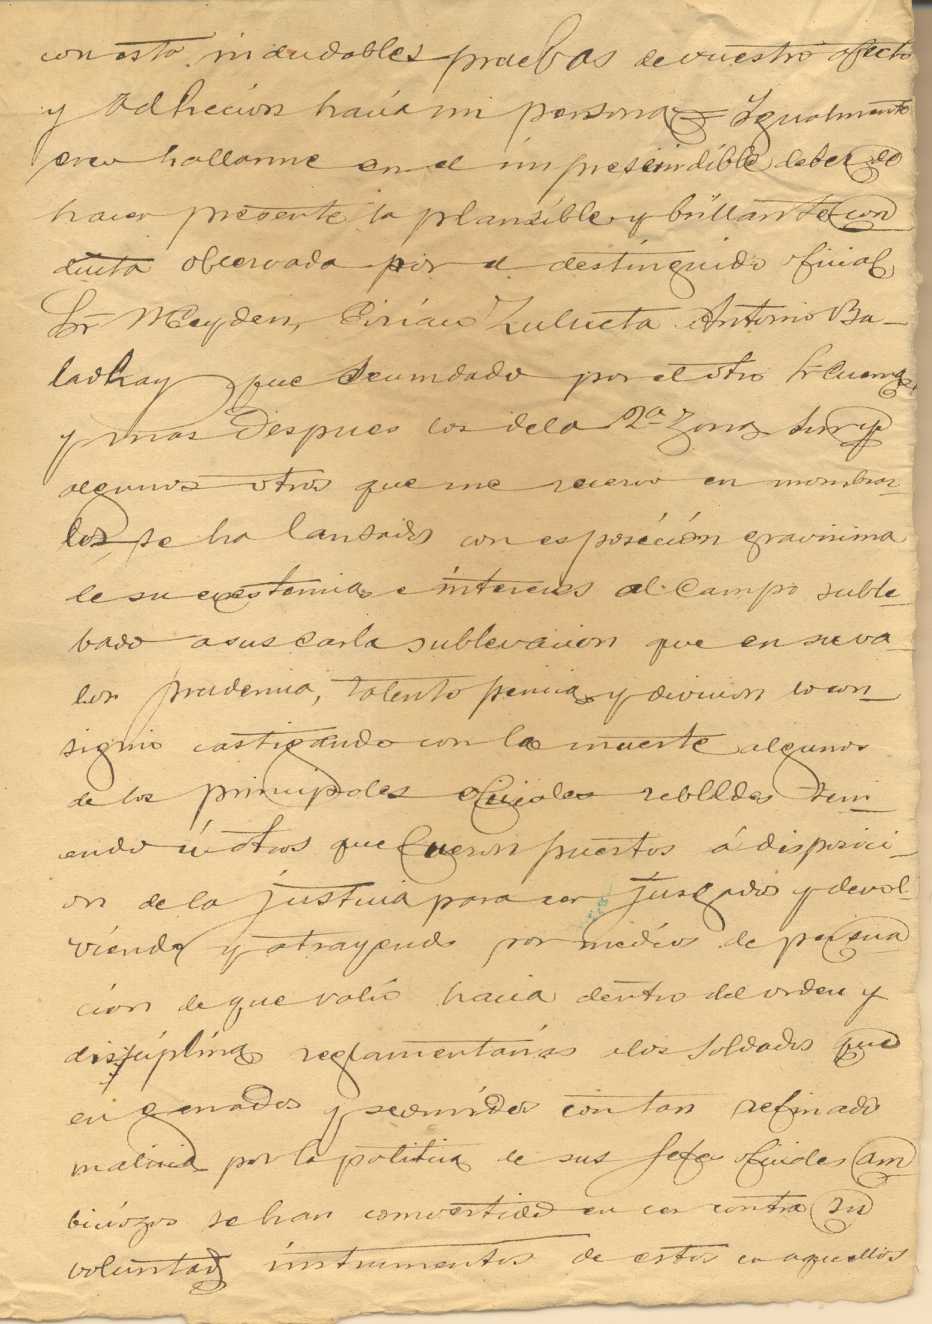 con esto indudables pruebas de vuestro afecto
y Adhecion hacia mi persona = Ygualmente
creo hallarme en el imprescindible deber de
hacer presente la plausible y brillante con
ducta observada por el distinguido oficial
Sr Ciriaco Zulueta Antonio Ba-
ladhay que secundado por el otro Sr
y mas despues los dela 2a Zona
algunos otros que me recervo en nombrar-
los, se ha lansado con esposición gravisima
de su existencia e intereses al campo suble-
bado a suscarla sublevacion que en su va-
lor prudencia, talento pericia y divicion lo con-
siguio castigando con la muerte algunos
de los principales oficiales rebeldes
endo ú otros que fueron puestos á disposici-
on de la justicia para ser jusgados y devol-
viendo y atrayendo por medios de persua
cion de que valio hacia dentro del orden y
disciplína reglamentarias alos soldados que
engañados y seducidos con tan refinado
malicia por la politica de sus Jefes oficiales am
biciozos se han convertido en ser contra su
voluntad instrumentos de estos en aquellos